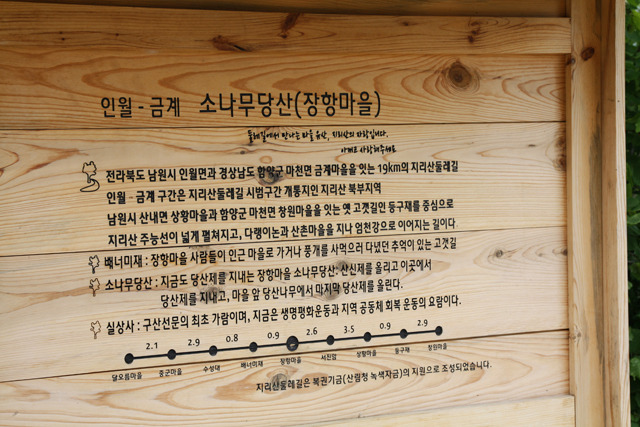 인월 - 금계 소나무당산(장항마을)
둘레길에서 만나는 마을 유산, 지리산의 자락입니다.
아껴요 사랑해주세요
전라북도 남원시 인월면과 경상남도 함양군 마천면 금계마을을 잇는 19km의 지리산둘레길
인월 - 금계 구간은 지리산둘레길 시범구간 개통지인 지리산 북부지역
남원시 산내면 상황마을과 함양군 마천면 창원마을을 잇는 옛 고갯길인 등구재를 중심으로
지리산 주능선이 넓게 펼쳐지고, 다랭이논과 산촌마을을 지나 엄천강으로 이어지는 길이다
배너미재 : 장항마을 사람들이 인근 마을로 가거나 풍개를 사먹으러 다녔던 추억이 있는 고갯길
소나무당산 : 지금도 당산제를 지내는 장항마을 소나무당산: 산신제를 올리고 이곳에서
당산제를 지내고, 마을 앞 당산나무에서 마지막 당산제를 올린다.
실상사 : 구산선문의 최초 가람이며, 지금은 생명평화운동과 지역 공동체 회복 운동의 요람이다.
2.1 2.9 0.8 0.9 2.6 3.5 0.9 2.9
달오름마을 중군마을 수성대 배너미재 장항마을 서진암 상황마을 등구재 창원마을
지리산둘레길은 복권기금(산림청 녹색자금)의 지원으로 조성되었습니다.